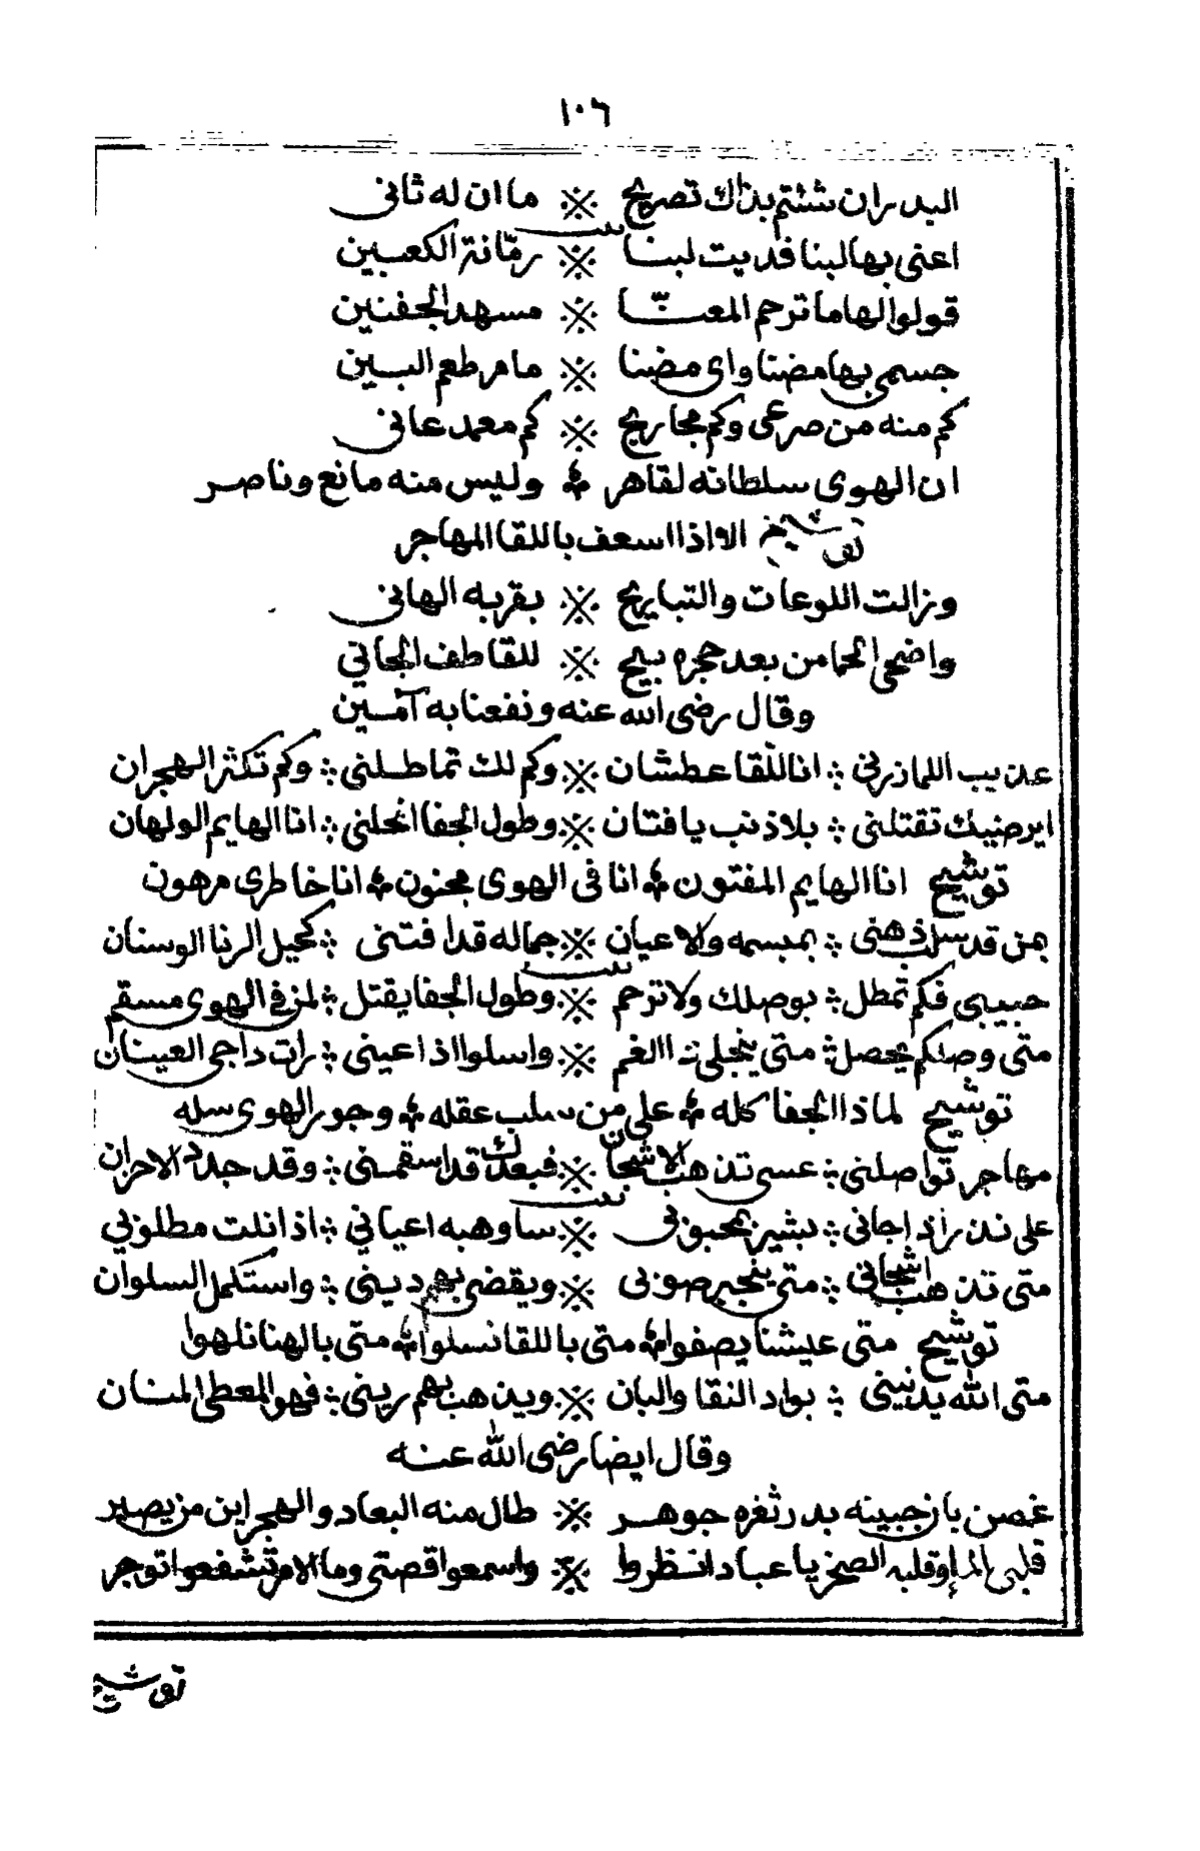 ١٠٦
البدران شئتم بذاك تصريح ※ ما ان له ثانى
بيت
اعنى بها لبنا فديت لبنا ※ رمّانة الكعبين
قولوا لها ما ترحم المعنّا ※ مسهد الجفنين
جسمى بها مضنا واى مضنا ※ ما مر طعم البين
كم منه من صرعى وكم مجاريح ※ كم معمد عانى
ان الهوى سلطانه لقاهر ؞ وليس منه مانع وناصر
توشيح الا اذا اسعف باللقا المهاجر
وزالت اللوعات والتباريح ※ بقربه الهانى
واضحى الحما من بعد حجره بيح ※ للقاطف الجاني
وقال رضى الله عنه ونفعنا به آمين
عذيب اللما زرني ؞ انا للّقا عطشان ※ وكم لك تماطلني ؞ وكم تكثر الهجران
ايرضيك تقتلني ؞ بلا ذنب يا فتان ※ وطول الجفا انحلني ؞ انا الهايم الولهان
توشيح انا الهايم المفتون ؞ انا فى الهوى مجنون ؞ انا خاطرى مرهون
بمن قد سلب ذهنى ؞ بمبسمه والاعيان ※ جماله قد افتنى ؞ كحيل الرنا الوسنان
بيت
حبيبى فكم تمطل ؞ بوصلك ولا ترحم ※ وطول الجفا يقتل ؞ لمن فى الهوى مسقم
متى وصلكم يحصل ؞ متى ينجلى ذا الغم ※ واسلوا اذا عينى ؞ رات داجى العينان
توشيح لماذا الجفا كله ؞ على من سلب عقله ؞ وجور الهوى سله
مهاجر تواصلنى ؞ عسى تذهب الاشجان ※ فبعدك قد اسقمنى ؞ وقد جدد الاحزان
بيت
على نذر اذا جانى ؞ بشير بمحبوبى ※ ساوهبه اعياني ؞ اذا نلت مطلوبي
متى تذهب اشجانى ؞ متى ينجبر صوبى ※ ويقضى بهم دينى ؞ واستكمل السلوان
توشيح متى عيشنا يصفوا ؞ متى باللقا نسلوا ؞ متى بالهنا نلهوا
متى الله يدنينى ؞ بواد النقا والبان ※ ويذهب بهم رينى ؞ فهو المعطى المنان
وقال ايضا رضى الله عنه
غصن بان جبينه بدر ثغره جوهر ※ طال منه البعاد والهجر اين من يصبر
قلبى الماء وقلبه الصخر يا عباد انظروا ※ واسمعوا قصتى وما الامر تشفعوا توجر
توشيح